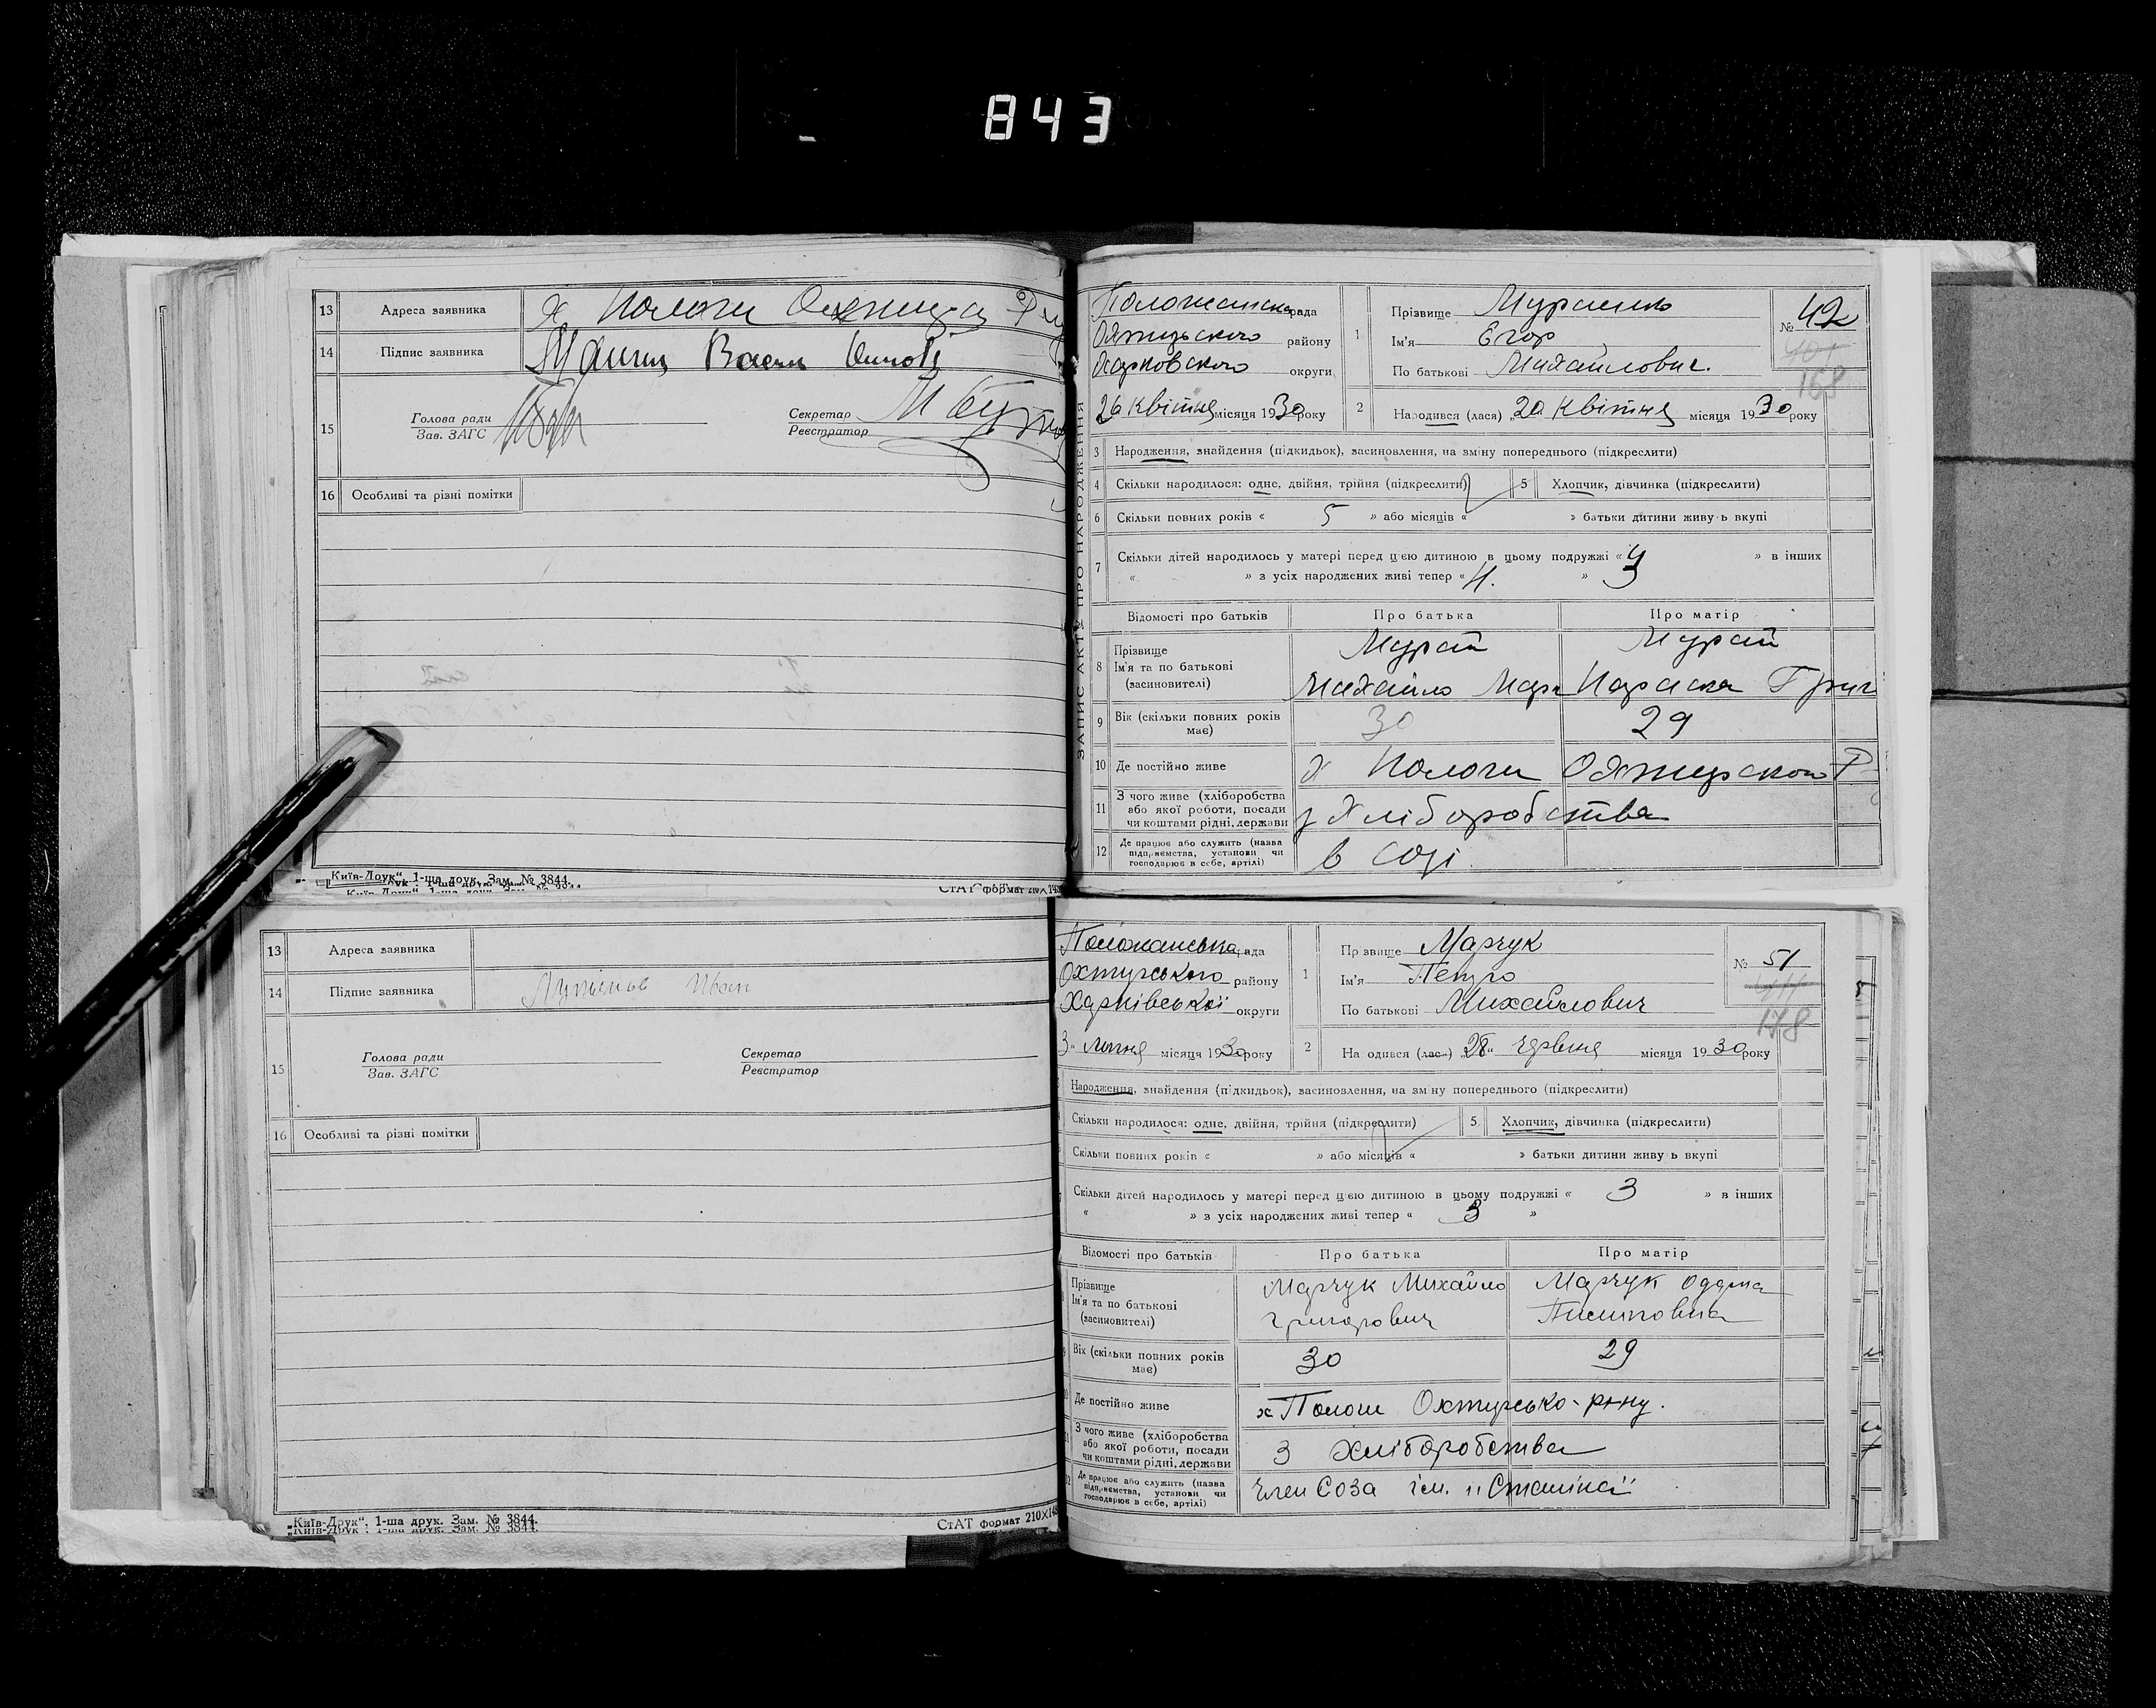 843
13 Адреса заявника х Пологи
14 Підпис заявника
15 Голова ради Секретар
Зав. ЗАГС Реєстратор
16 Особливі та різні помітки
„Київ-Друк“, 1-ша друк. Зам. № 3844.
СтАТ формат 210×148
ЗАПИС АКТУ ПРО НАРОДЖЕННЯ
Положанська рада
району
округи
26 Квітня місяця 1930 року
1 Прізвище
Ім'я Егор
По батькові Михайлович.
№ 42
168
2 Народився (лася) „20 Квітня місяця 1930 року
3 Народження, знайдення (підкидьок), засиновлення, на зміну попереднього (підкреслити)
4 Скільки народилося: одне, двійня, трійня (підкреслити) 5 Хлопчик, дівчинка (підкреслити)
6 Скільки повних років « 5 » або місяців « » батьки дитини живу ь вкупі
7 Скільки дітей народилось у матері перед цією дитиною в цьому подружжі « 4 » в інших
« » з усіх народжених живі тепер « 4. »
Відомості про батьків Про батька Про матір
8 Прізвище Мурай Мурай
Ім'я та по батькові
(засиновителі) Михайло Параска Григ
9 Вік (скільки повних років має) 30 29
10 Де постійно живе х Пологи
11 З чого живе (хліборобства або якої роботи, посади чи коштами рідні, держави з Хліборобства
12 Де працює або служить (назва підприємства, установи чи господарює в себе, артілі) в созі
13 Адреса заявника
14 Підпис заявника Іван
15 Голова ради Секретар
Зав. ЗАГС Реєстратор
16 Особливі та різні помітки
„Київ-Друк“, 1-ша друк. Зам. № 3844.
СтАТ формат 210×148
Положанська рада
Охтирського району
Харківської округи
3" липня місяця 1930 року
1 Пр звище Марчук
Ім'я Петро
По батькові Михайлович
№ 51
178
2 На одився (лас-) „28" червня місяця 1930 року
Народження, знайдення (підкидьок), засиновлення, на зміну попереднього (підкреслити)
Скільки народилося: одне, двійня, трійня (підкреслити) 5 Хлопчик, дівчинка (підкреслити)
Скільки повних років « » або місяців « » батьки дитини живу ь вкупі
Скільки дітей народилось у матері перед цією дитиною в цьому подружжі « 3 » в інших
« » з усіх народжених живі тепер « 3 »
Відомості про батьків Про батька Про матір
Прізвище Марчук Михайло Марчук Одарка
Ім'я та по батькові Григорович
(засиновителі)
Вік (скільки повних років має) 30 29
Де постійно живе х Пологи Охтирсько-р-ну.
З чого живе (хліборобства або якої роботи, посади чи коштами рідні, держави З хліборобства
Де працює або служить (назва підприємства, установи чи господарює в себе, артілі) член Соза ім. „Сталіна"